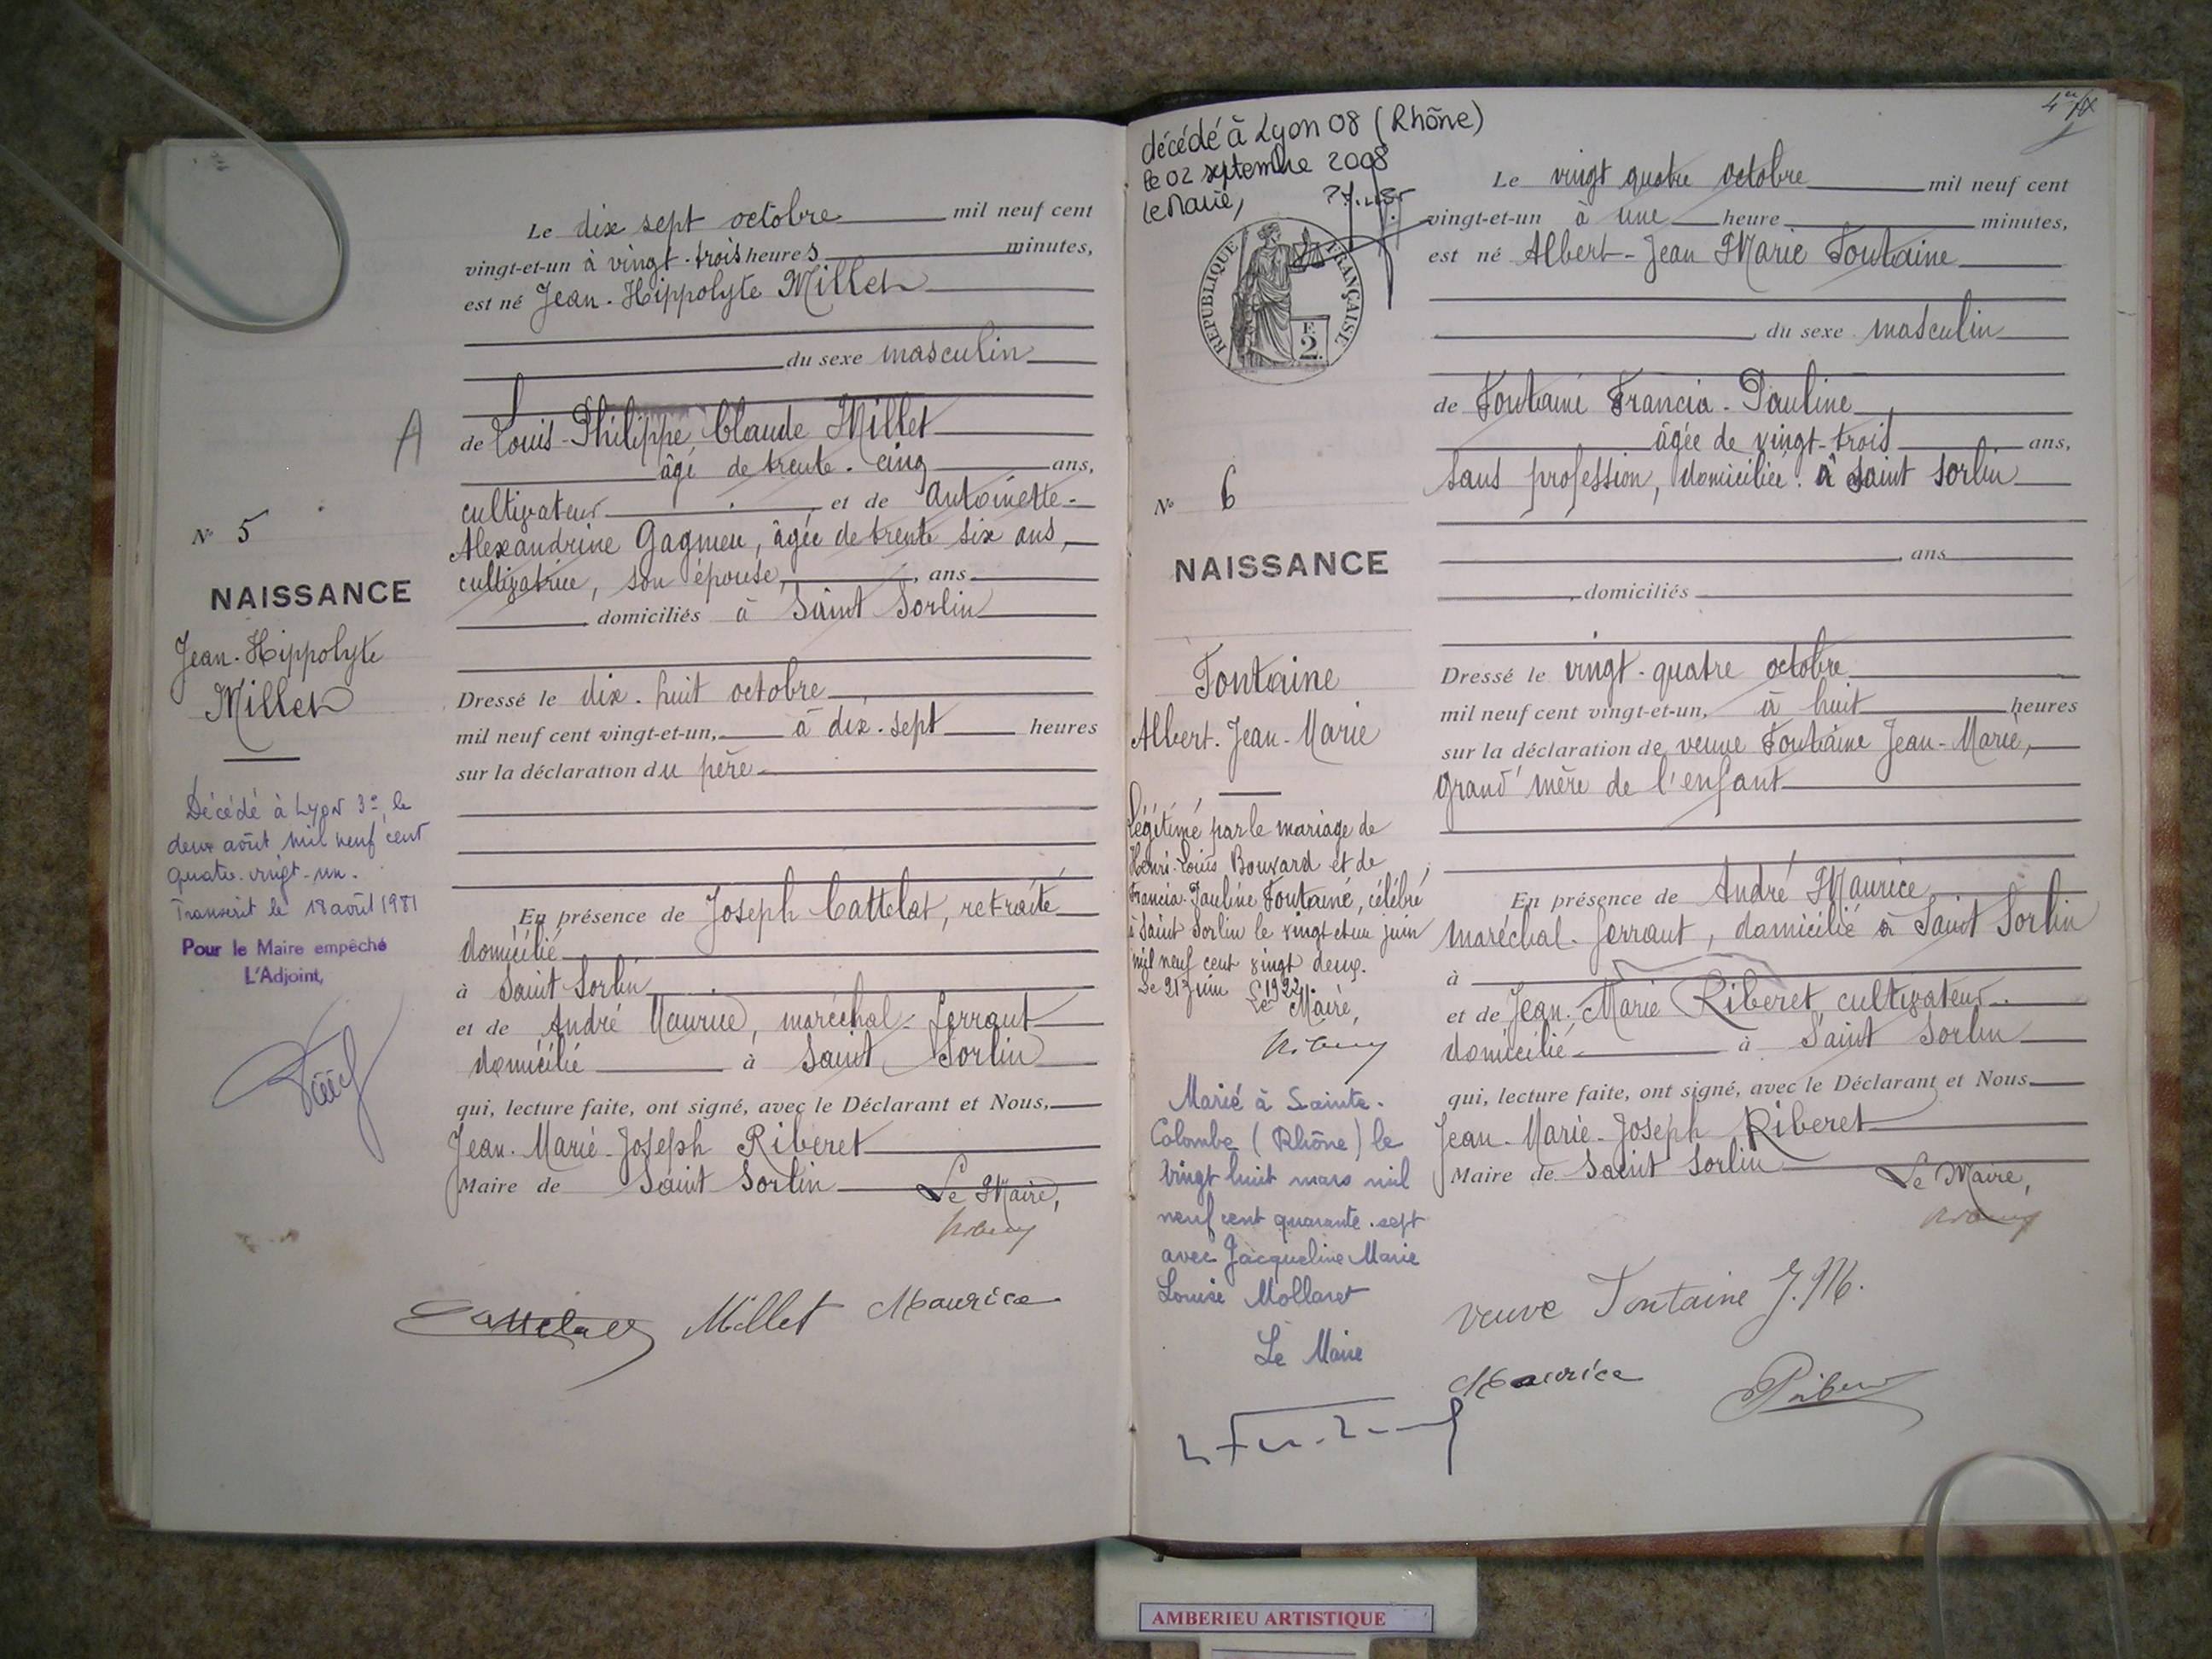 Le dix sept octobre mil neuf cent
vingt-et-un à vingt-trois heures minutes,
est né Jean-Hippolyte Millet
du sexe masculin
A
de Louis-Philippe Claude Millet
âgé de trente-cinq ans,
cultivateur et de Antoinette-
Alexandrine Gagnieu, âgée de trente six ans,
cultivatrice, son épouse, ans
domiciliés à Saint Sorlin
Dressé le dix-huit octobre
mil neuf cent vingt-et-un, à dix-sept heures
sur la déclaration du père
En présence de Joseph Cattelat, retraité
domicilié
à Saint Sorlin
et de André Maurice, maréchal-ferrant
domicilié à Saint Sorlin
qui, lecture faite, ont signé, avec le Déclarant et Nous,
Jean-Marie-Joseph Riberet
Maire de Saint Sorlin Le Maire,
Millet Maurice
N° 5
NAISSANCE
Jean-Hippolyte
Millet
Décédé à Lyon 3e, le
deux août mil neuf cent
quatre-vingt-un.
Transcrit le 18 août 1981
Pour le Maire empêché
L'Adjoint,
décédé à Lyon 08 (Rhône)
le 02 septembre 2008
le Maire,
RÉPUBLIQUE FRANÇAISE
F.
2.
N° 6
NAISSANCE
Fontaine
Albert-Jean-Marie
Légitimé par le mariage de
Henri-Louis Bouvard et de
Francia-Pauline Fontaine, célébré
à Saint Sorlin le vingt et un juin
mil neuf cent vingt deux.
Le 21 Juin 1922.
Le Maire,
Marié à Sainte-
Colombe (Rhône) le
vingt huit mars mil
neuf cent quarante-sept
avec Jacqueline Marie
Louise Mollaret
Le Maire
Le vingt quatre octobre mil neuf cent
vingt-et-un à une heure minutes,
est né Albert-Jean Marie Fontaine
du sexe masculin
de Fontaine Francia-Pauline
âgée de vingt-trois ans,
sans profession, domiciliée à Saint Sorlin
ans
domiciliés
Dressé le vingt-quatre octobre
mil neuf cent vingt-et-un, à huit heures
sur la déclaration de veuve Fontaine Jean-Marie,
grand'mère de l'enfant
En présence de André Maurice
maréchal-ferrant, domicilié à Saint Sorlin
à
et de Jean-Marie Riberet cultivateur
domicilié à Saint Sorlin
qui, lecture faite, ont signé, avec le Déclarant et Nous
Jean-Marie-Joseph Riberet
Maire de Saint Sorlin
Le Maire,
veuve Fontaine J.M.
Maurice
AMBERIEU ARTISTIQUE